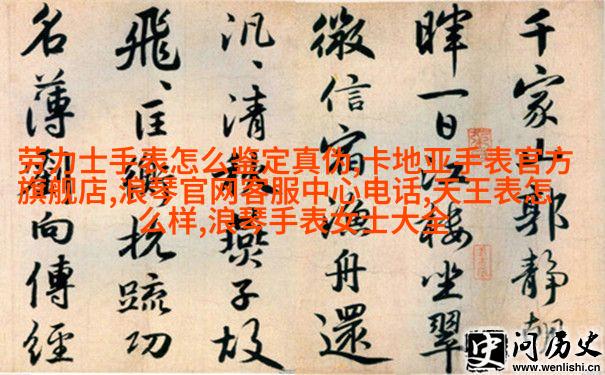 劳力士手表怎么鉴定真伪,卡地亚手表官方
旗舰店,浪琴官网客服中心电话,天王表怎
么样,浪琴手表女士大全
千家山郭静朝
暉一日江樓坐翠
微信宿漁舟還
汎、清秋燕子故
飛、匡衡抗疏功
名薄劉向傳經
史 问历史
www.wenlishi.cn